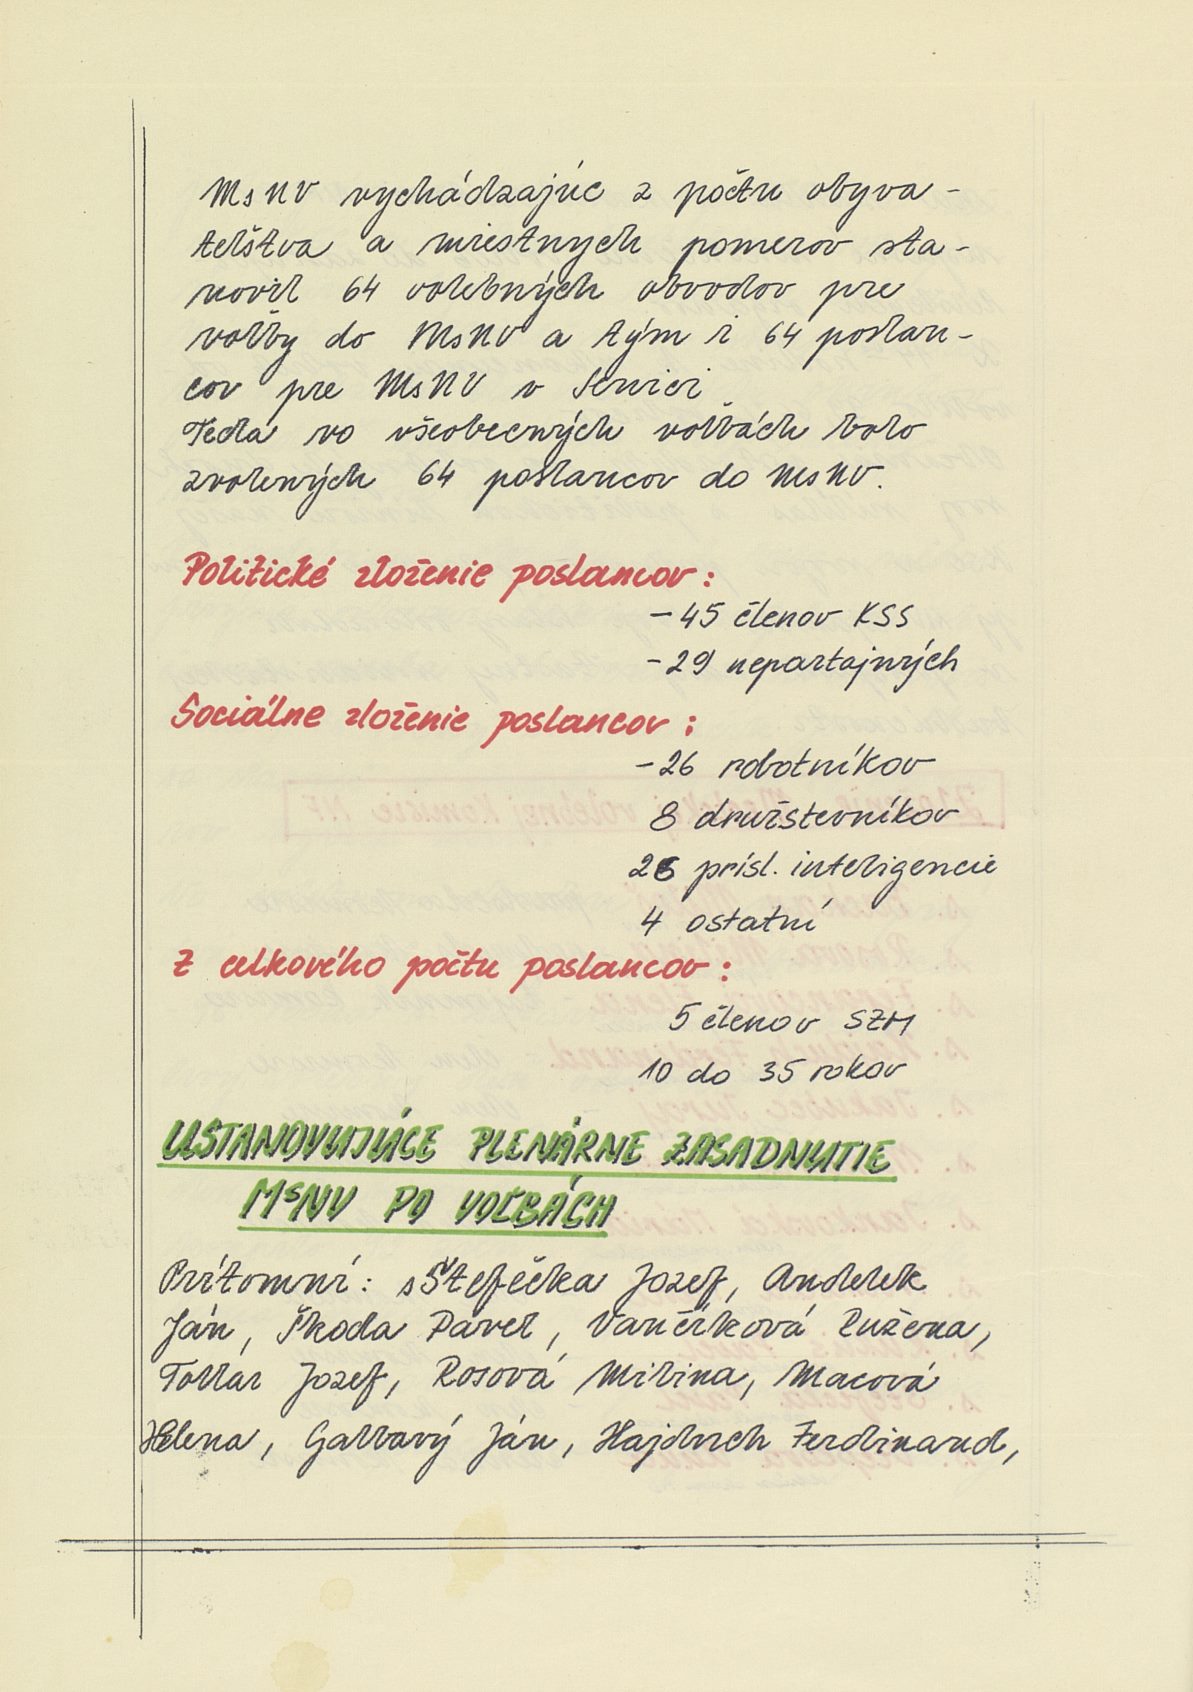 MsNV vychádzajúc z počtu obyva-
teľstva a miestnych pomerov sta-
novil 64 volebných obvodov pre
voľby do MsNV a tým i 64 poslan-
cov pre MsNV v Senici
Teda vo všeobecných voľbách bolo
zvolených 64 poslancov do MsNV.
Politické zloženie poslancov:
- 45 členov KSS
- 29 nepartajných
Sociálne zloženie poslancov:
- 26 robotníkov
8 družstevníkov
26 prísl. inteligencie
4 ostatní
Z celkového počtu poslancov:
5 členov SZM
10 do 35 rokov
USTANOVUJÚCE PLENÁRNE ZASADNUTIE
MsNV PO VOĽBÁCH
Prítomní: s Štefečka Jozef, Andelek
Ján, Škoda Pavel, Vančíková Ružena,
Tollar Jozef, Rosová Milina, Macová
Helena, Galbavý Ján, Hajduch Ferdinand,